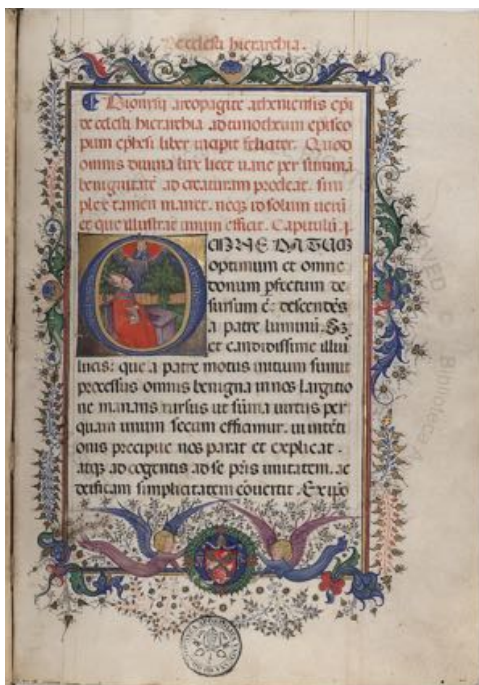 De celesti hierarchia.
Dionysij areopagite atheniensis epi
de celesti hierarchia ad timotheum episco
pum ephesi liber incipit feliciter. Quod
omnis divina lux licet varie per summā
benignitatē ad creaturam procedat. sim
plex tamen manet. neqꝫ id solum verū
et que illustrat unum efficit. Capitulū. j.
OMNE DATUM
optimum et omne
donum pfectum de
sursum ē: descendēs
a patre luminū. Sꝫ
et candidissime illui
lucis: que a patre motus initium sumit
processus omnis benigna in nos largitio
ne manans rursus ut sūma virtus per
quam unum secum efficimur. in intēti
onis precipue nos parat et explicat.
atqꝫ ad cogentis ad se pris unitatem. ac
deificam simplicitatem cōvertit. Ex ipo